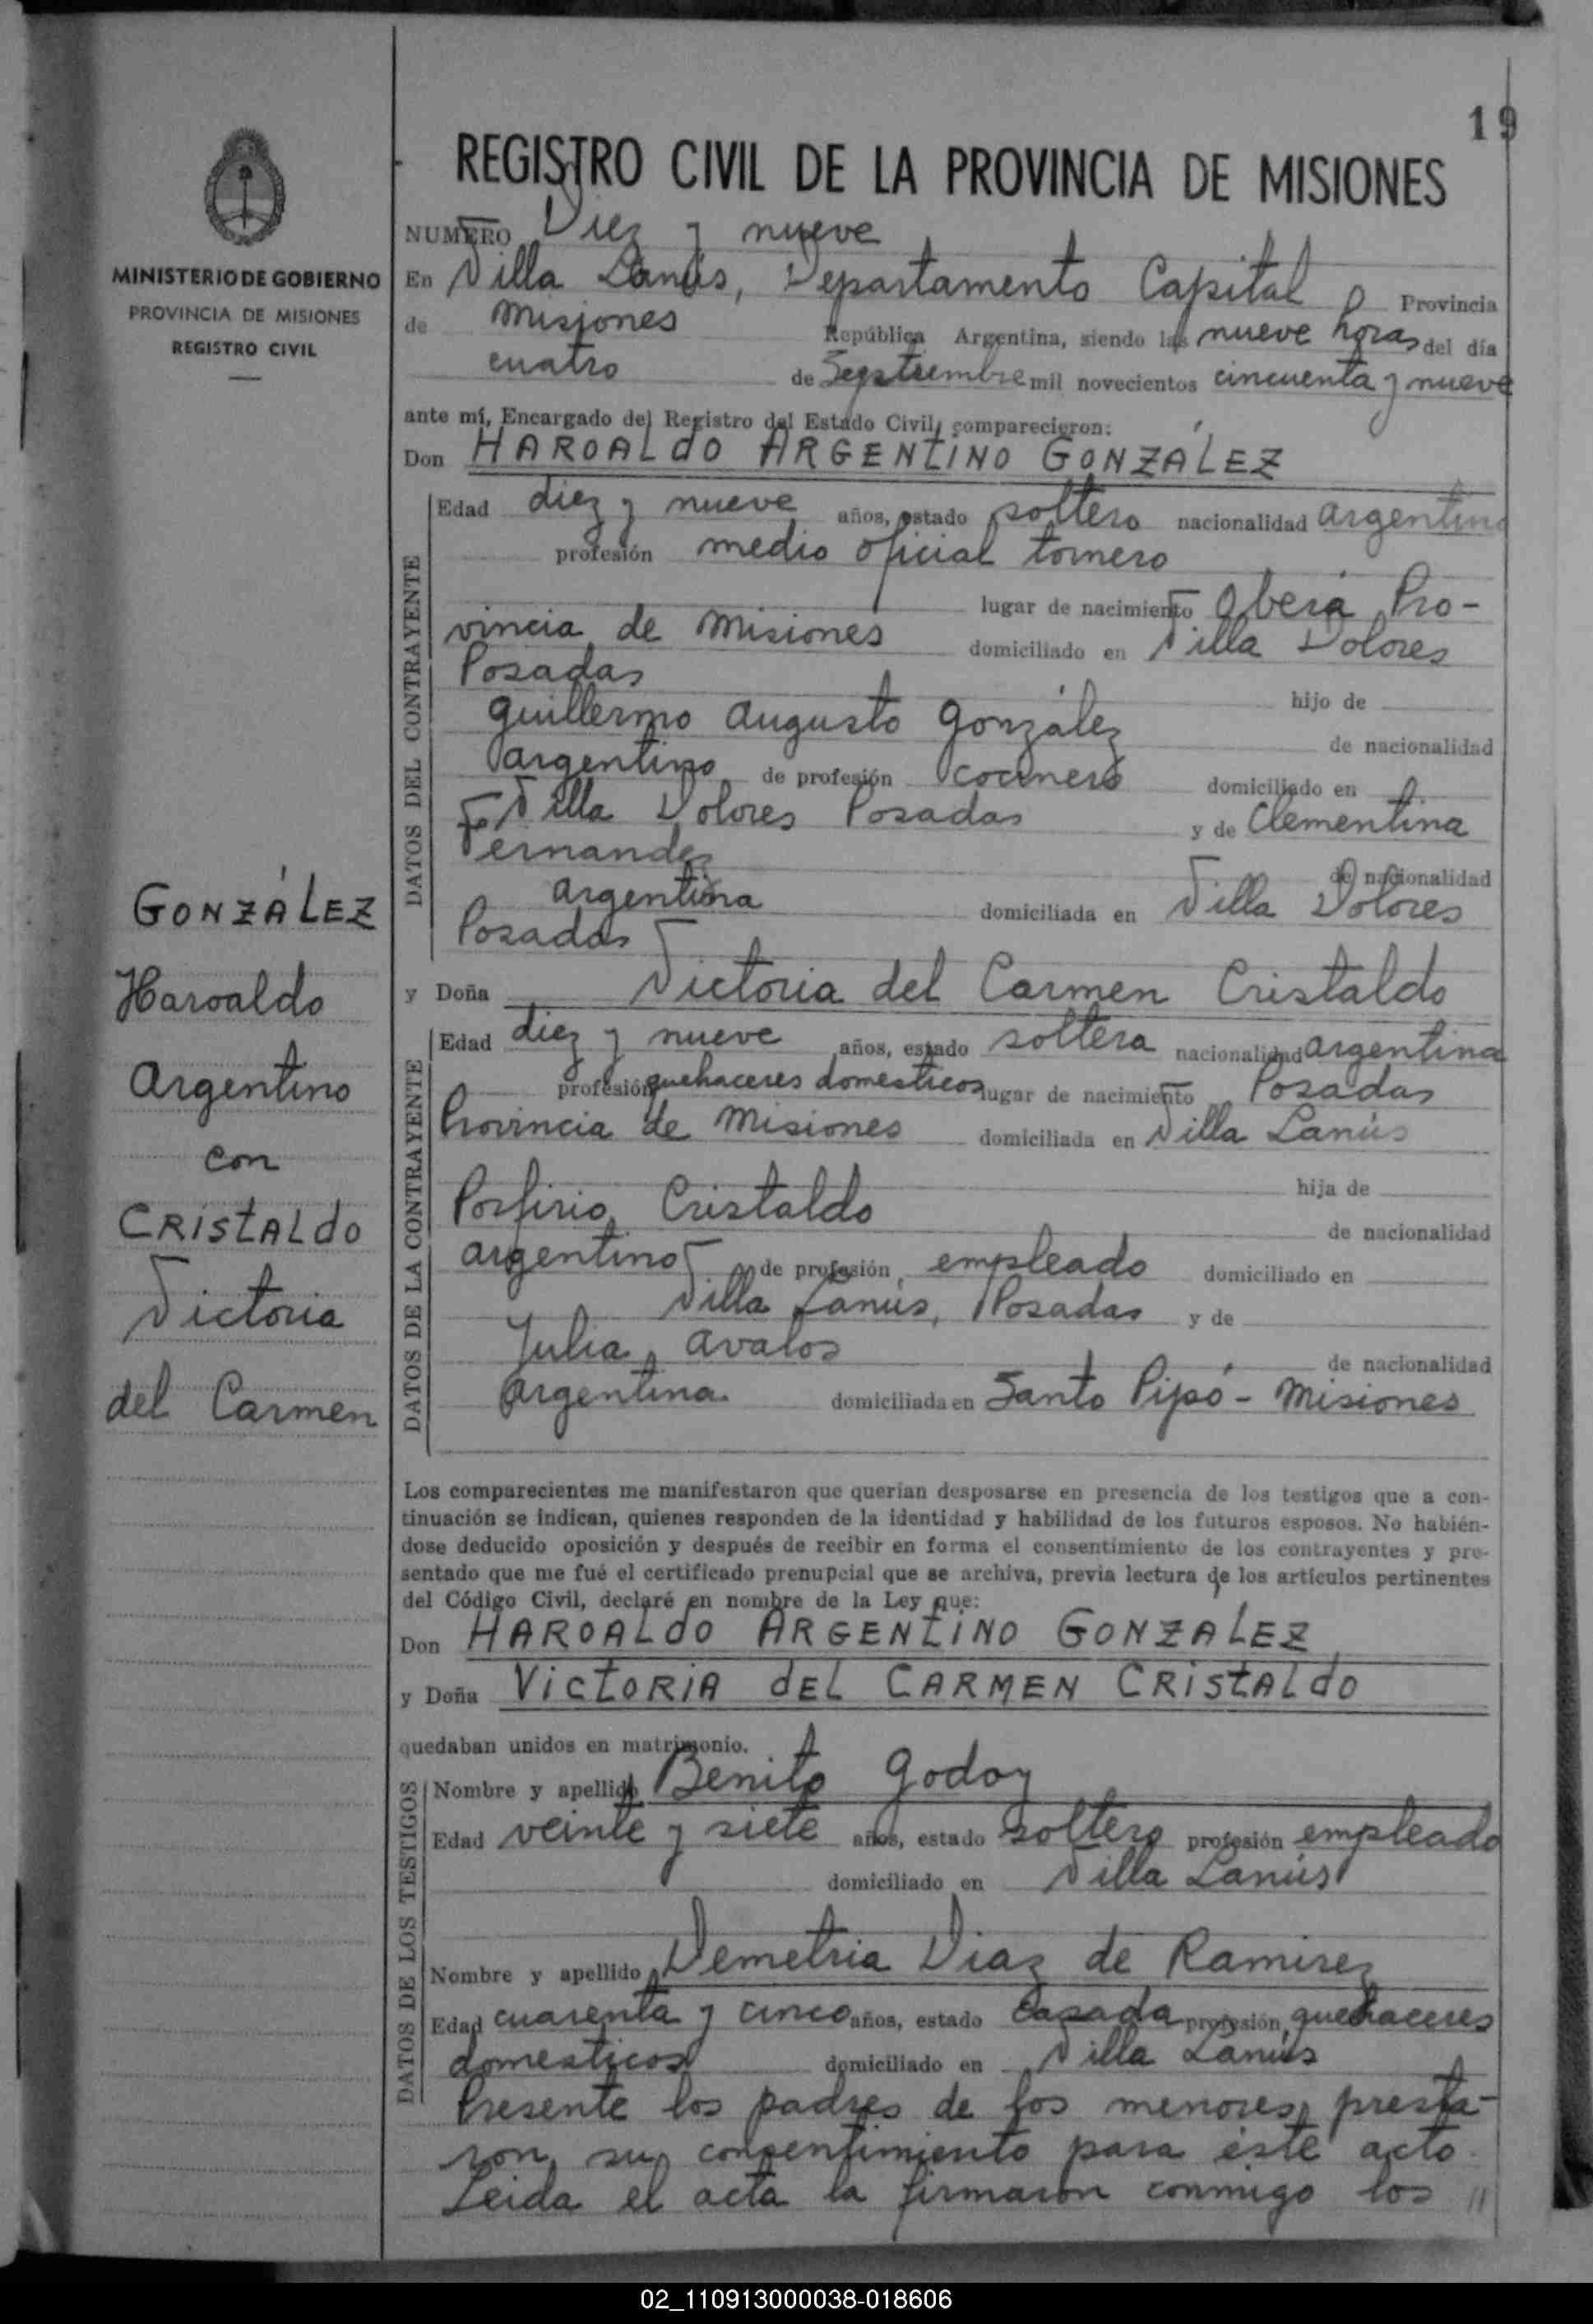 19
REGISTRO CIVIL DE LA PROVINCIA DE MISIONES
MINISTERIO DE GOBIERNO
PROVINCIA DE MISIONES
REGISTRO CIVIL
GONZÁLEZ
Haroaldo
Argentino
con
CRISTALdO
Victoria
del Carmen
NUMERO Diez y nueve
En Villa Lanús, Departamento Capital Provincia
de Misiones República Argentina, siendo las nueve horas del día
cuatro de Septiembre mil novecientos cincuenta y nueve
ante mí, Encargado del Registro del Estado Civil, comparecieron:
Don HAROALdO ARGENTINO GONZÁLEZ
DATOS DEL CONTRAYENTE
Edad diez y nueve años, estado soltero nacionalidad argentino
profesión medio oficial tornero
lugar de nacimiento Oberá Pro-
vincia de Misiones domiciliado en Villa Dolores
Posadas
hijo de
Guillermo Augusto González
de nacionalidad
argentino de profesión cocinero domiciliado en
Villa Dolores Posadas y de Clementina
Fernandez
de nacionalidad
argentina domiciliada en Villa Dolores
Posadas
y Doña Victoria del Carmen Cristaldo
DATOS DE LA CONTRAYENTE
Edad diez y nueve años, estado soltera nacionalidad argentina
profesión quehaceres domesticos lugar de nacimiento Posadas
Provincia de Misiones domiciliada en Villa Lanús
hija de
Porfirio Cristaldo
de nacionalidad
argentino de profesión empleado domiciliado en
Villa Lanús, Posadas y de
Julia Avalos
de nacionalidad
argentina domiciliada en Santo Pipó - Misiones
Los comparecientes me manifestaron que querían desposarse en presencia de los testigos que a con-
tinuación se indican, quienes responden de la identidad y habilidad de los futuros esposos. No habién-
dose deducido oposición y después de recibir en forma el consentimiento de los contrayentes y pre-
sentado que me fué el certificado prenupcial que se archiva, previa lectura de los artículos pertinentes
del Código Civil, declaré en nombre de la Ley que:
Don HAROALdO ARGENTINO GONZALEZ
y Doña VICTORIA dEL CARMEN CRISTALdO
quedaban unidos en matrimonio.
DATOS DE LOS TESTIGOS
Nombre y apellido Benito Godoy
Edad veinte y siete años, estado soltero profesión empleado
domiciliado en Villa Lanús
Nombre y apellido Demetria Diaz de Ramirez
Edad cuarenta y cinco años, estado casada profesión quehaceres
domesticos domiciliado en Villa Lanús
Presente los padres de los menores, presta-
ron su consentimiento para éste acto.
Leida el acta la firmaron conmigo los //
02_110913000038-018606